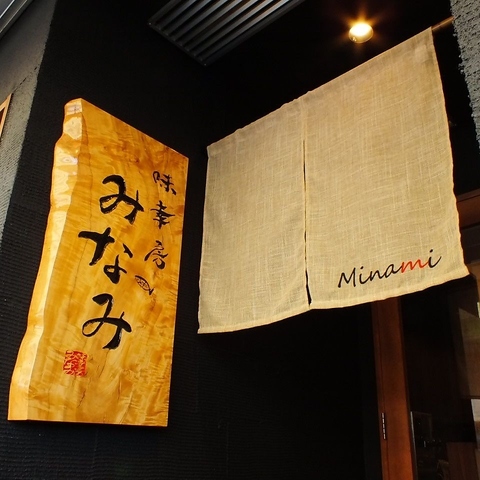 味幸房
みなみ
Minami